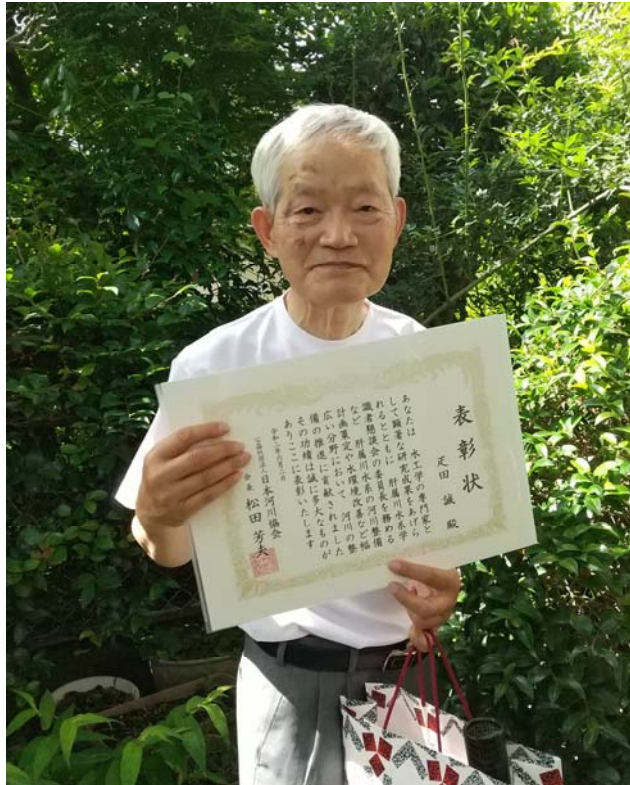 表彰状
疋田 誠 殿
あなたは 水工学の専門家と
して顕著な研究成果をあげら
れるとともに 肝属川水系学
識者懇談会の委員長を務める
など 肝属川水系の河川整備
計画策定や水環境改善など幅
広い分野において 河川の整
備の推進に貢献されました
その功績は誠に多大なものが
ありここに表彰いたします
令和二年六月二日
公益社団法人日本河川協会
会長 松田 芳夫